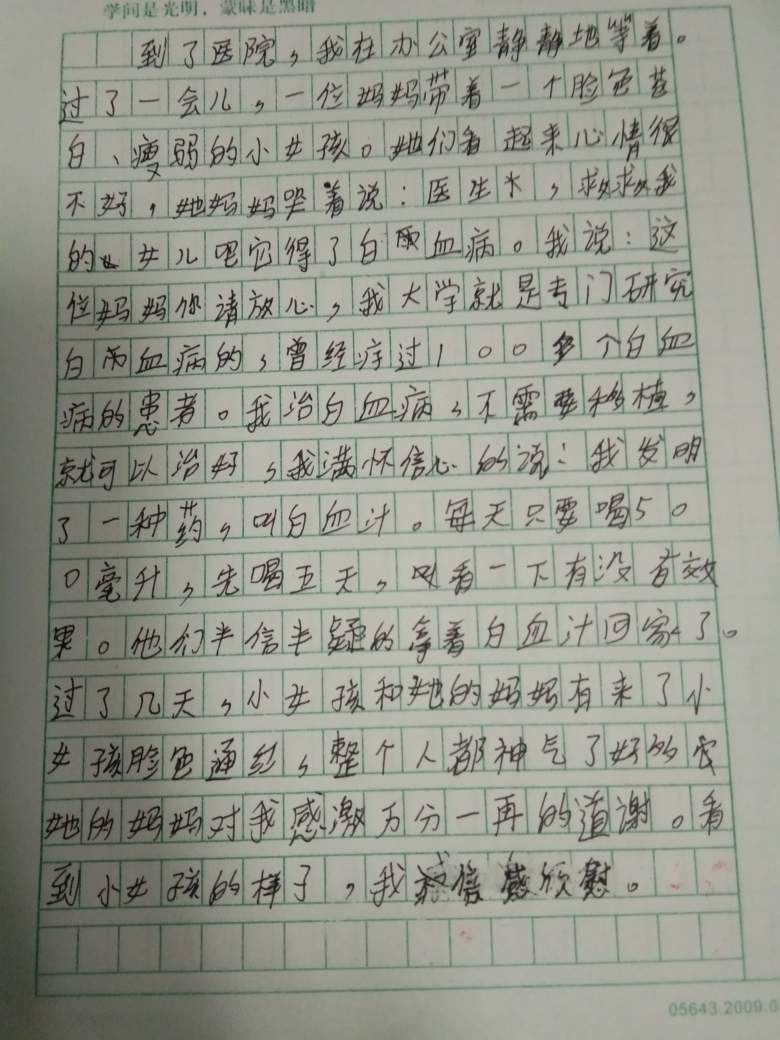 学问是光明，蒙昧是黑暗
到了医院，我在办公室静静地等着。
过了一会儿，一位妈妈带着一个脸色苍
白、瘦弱的小女孩。她们看起来心情很
不好，她妈妈哭着说：医生，求求我
的女儿吧它得了白血病。我说：这
位妈妈你请放心，我大学就是专门研究
白血病的，曾经疗过100多个白血
病的患者。我治白血病，不需要移植，
就可以治好，我满怀信心的说：我发明
了一种药，叫白血汁。每天只要喝50
0毫升，先喝五天，看一下有没有效
果。他们半信半疑的拿着白血汁回家了。
过了几天，小女孩和她的妈妈有来了小
女孩脸色通红，整个人都神气了好的
她的妈妈对我感激万分一再的道谢。看
到小女孩的样子，我倍感欣慰。
05643.2009.0